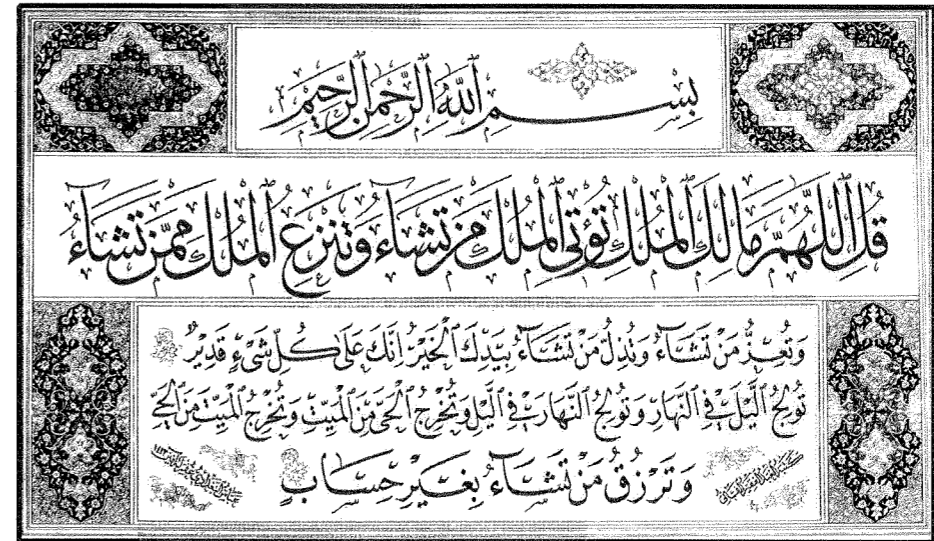 بِسْمِ ٱللَّهِ ٱلرَّحْمَٰنِ ٱلرَّحِيمِ
قُلِ ٱللَّهُمَّ مَالِكَ ٱلْمُلْكِ تُؤْتِي ٱلْمُلْكَ مَنْ تَشَآءُ وَتَنْزِعُ ٱلْمُلْكَ مِمَّنْ تَشَآءُ
وَتُعِزُّ مَنْ تَشَآءُ وَتُذِلُّ مَنْ تَشَآءُ بِيَدِكَ ٱلْخَيْرُ إِنَّكَ عَلَىٰ كُلِّ شَيْءٍ قَدِيرٌ
تُولِجُ ٱللَّيْلَ فِي ٱلنَّهَارِ وَتُولِجُ ٱلنَّهَارَ فِي ٱللَّيْلِ وَتُخْرِجُ ٱلْحَيَّ مِنَ ٱلْمَيِّتِ وَتُخْرِجُ ٱلْمَيِّتَ مِنَ ٱلْحَيِّ
وَتَرْزُقُ مَنْ تَشَآءُ بِغَيْرِ حِسَابٍ